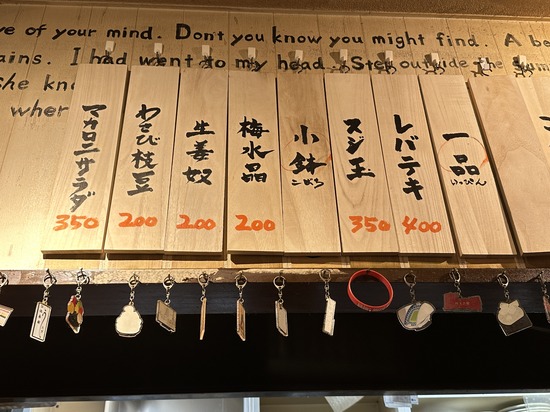 ve of your mind. Don't you know you might find. A be
ains. I had went to my head. Step outside the summ
She kno
wher
一品
いっぴん
レバテキ
400
スジ玉
350
小鉢
こばち
梅水晶
200
生姜奴
200
わさび枝豆
200
マカロニサラダ
350